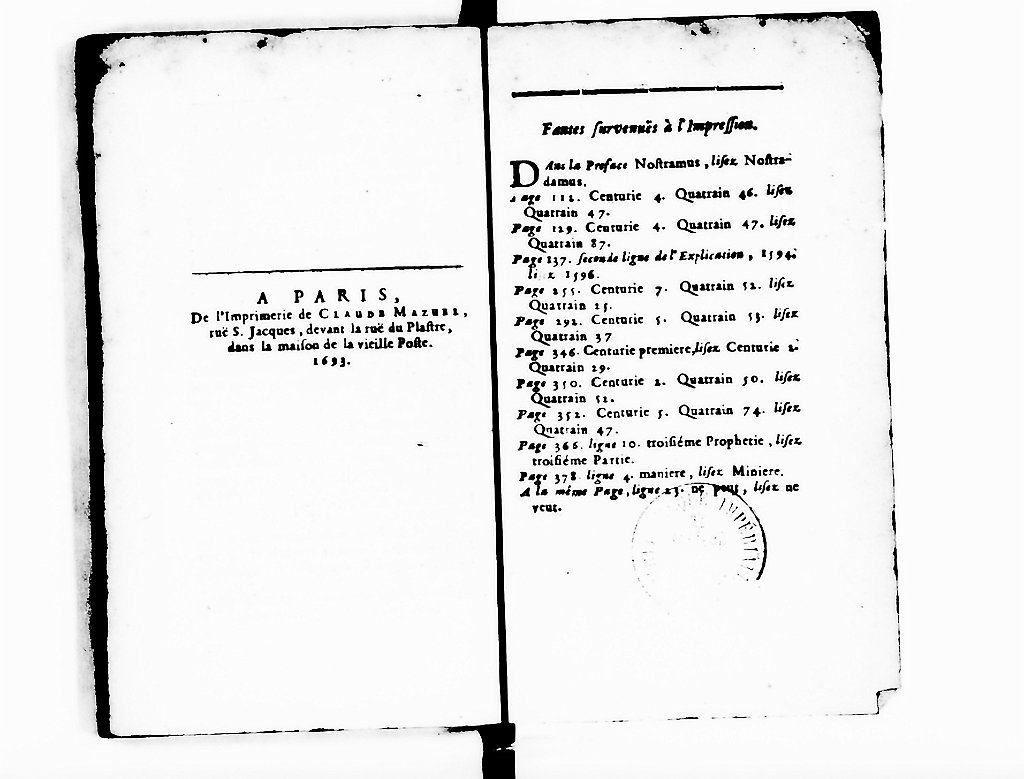 A PARIS,
De l'Imprimerie de CLAUDE MAZUEL,
ruë S. Jacques, devant la ruë du Plaſtre,
dans la maiſon de la vieille Poſte.
1693.
Fautes ſurvenuës à l'Impreſſion.
DAns la Preface Noſtramus, liſez Noſtra-
damus.
Page 112. Centurie 4. Quatrain 46. liſez
Quatrain 47.
Page 129. Centurie 4. Quatrain 47. liſez
Quatrain 87.
Page 137. ſeconde ligne de l'Explication, 1594.
liſez 1596.
Page 255. Centurie 7. Quatrain 52. liſez
Quatrain 25.
Page 292. Centurie 5. Quatrain 53. liſez
Quatrain 37
Page 346. Centurie premiere, liſez Centurie 2.
Quatrain 29.
Page 350. Centurie 2. Quatrain 50. liſez
Quatrain 52.
Page 352. Centurie 5. Quatrain 74. liſez
Quatrain 47.
Page 366. ligne 10. troiſiéme Prophetie, liſez
troiſiéme Partie.
Page 378. ligne 4. maniere, liſez Miniere.
A la même Page, ligne 23. ne peut, liſez ne
veut.
IMPÉRIALE